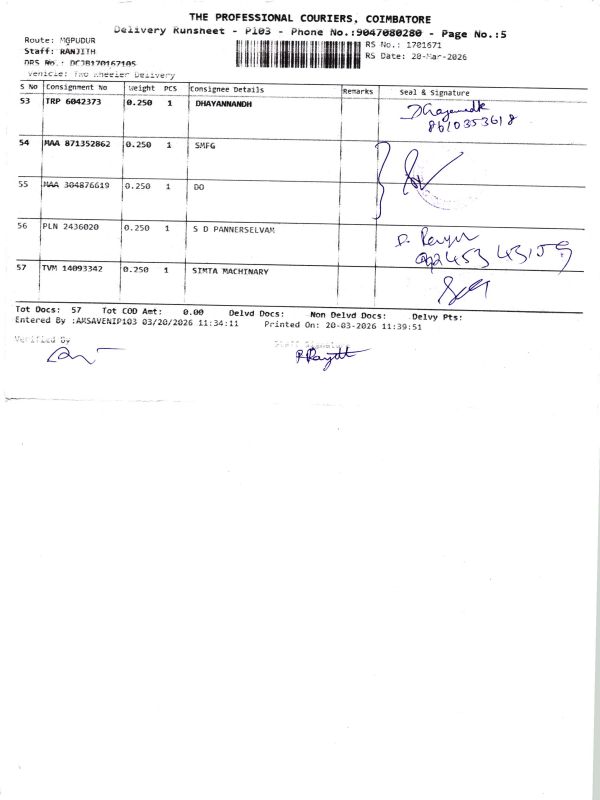 THE PROFESSIONAL COURIERS, COIMBATORE
Delivery Runsheet - P103 - Phone No.:9047080280 - Page No.:5
Route: MGPUDUR
RS No.: 1701671
Staff: RANJITH
RS Date: 20-Mar-2026
DRS No.: DCJB170167105
Vehicle: Two Wheeler Delivery
S No Consignment No Weight PCS Consignee Details Remarks Seal & Signature
53 TRP 6042373 0.250 1 DHAYANNANDH
8610353618
54 MAA 871352862 0.250 1 SMFG
55 MAA 304876619 0.250 1 DO
56 PLN 2436020 0.250 1 S D PANNERSELVAM
57 TVM 14093342 0.250 1 SIMTA MACHINARY
Tot Docs: 57 Tot COD Amt: 0.00 Delvd Docs: Non Delvd Docs: Delvy Pts:
Entered By :AKSAVENIP103 03/20/2026 11:34:11 Printed On: 20-03-2026 11:39:51
Verified By Staff Signature